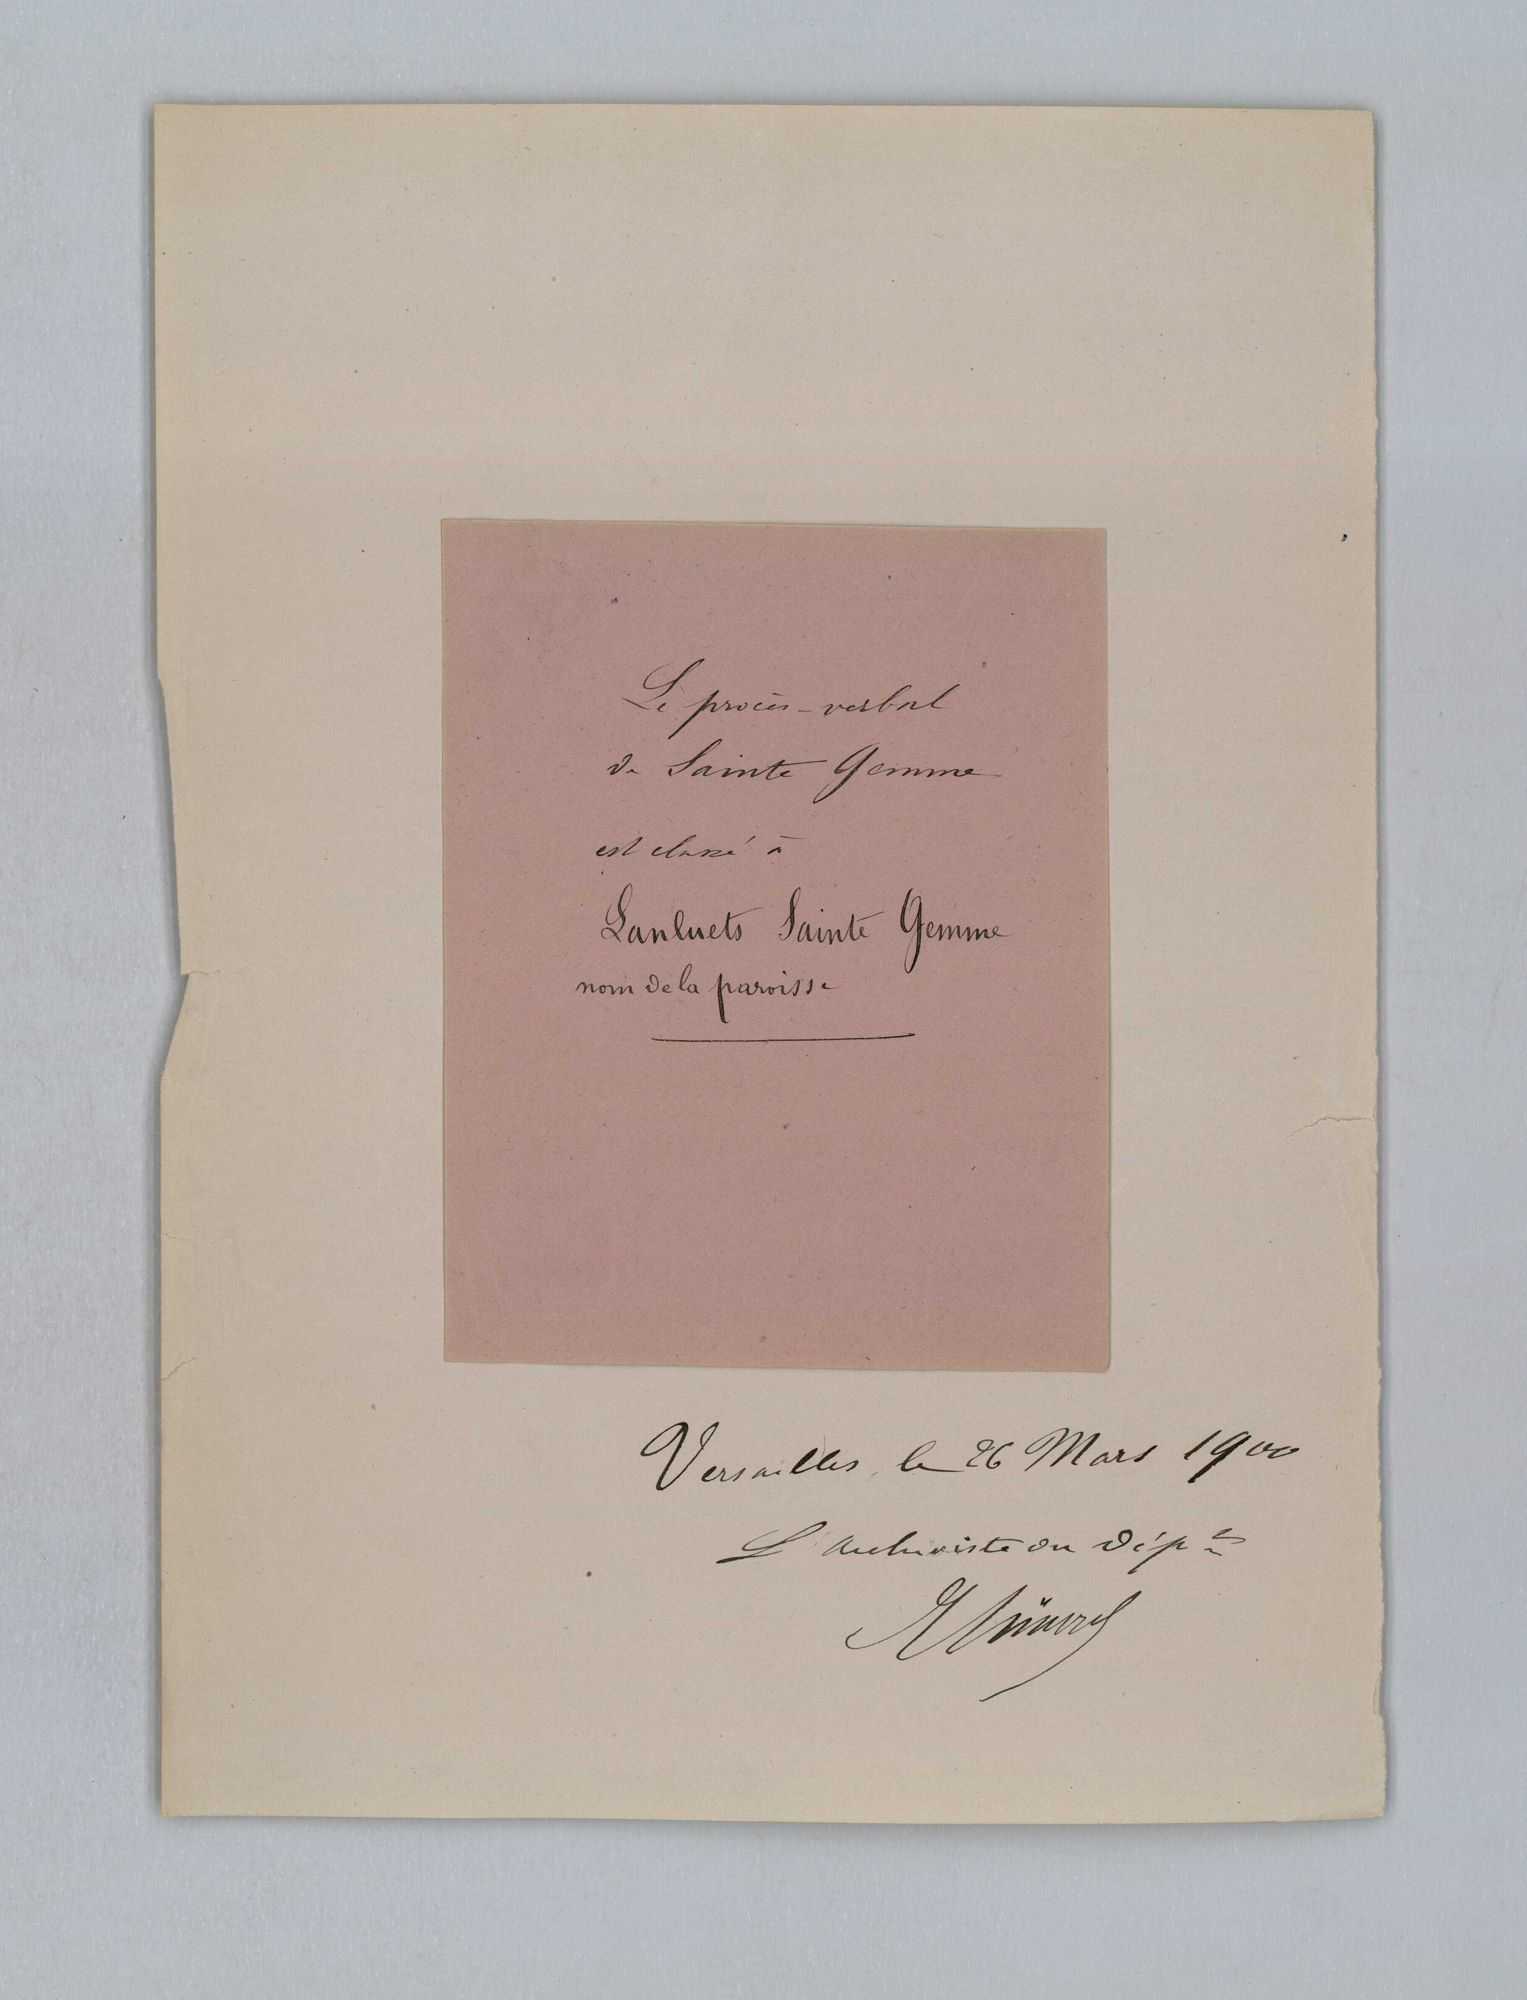 Le procès-verbal
de Sainte Gemme
est classé à
Lanluets Sainte Gemme
nom de la paroisse
Versailles, le 26 Mars 1900
L'archiviste du dép<sup>t</sup>